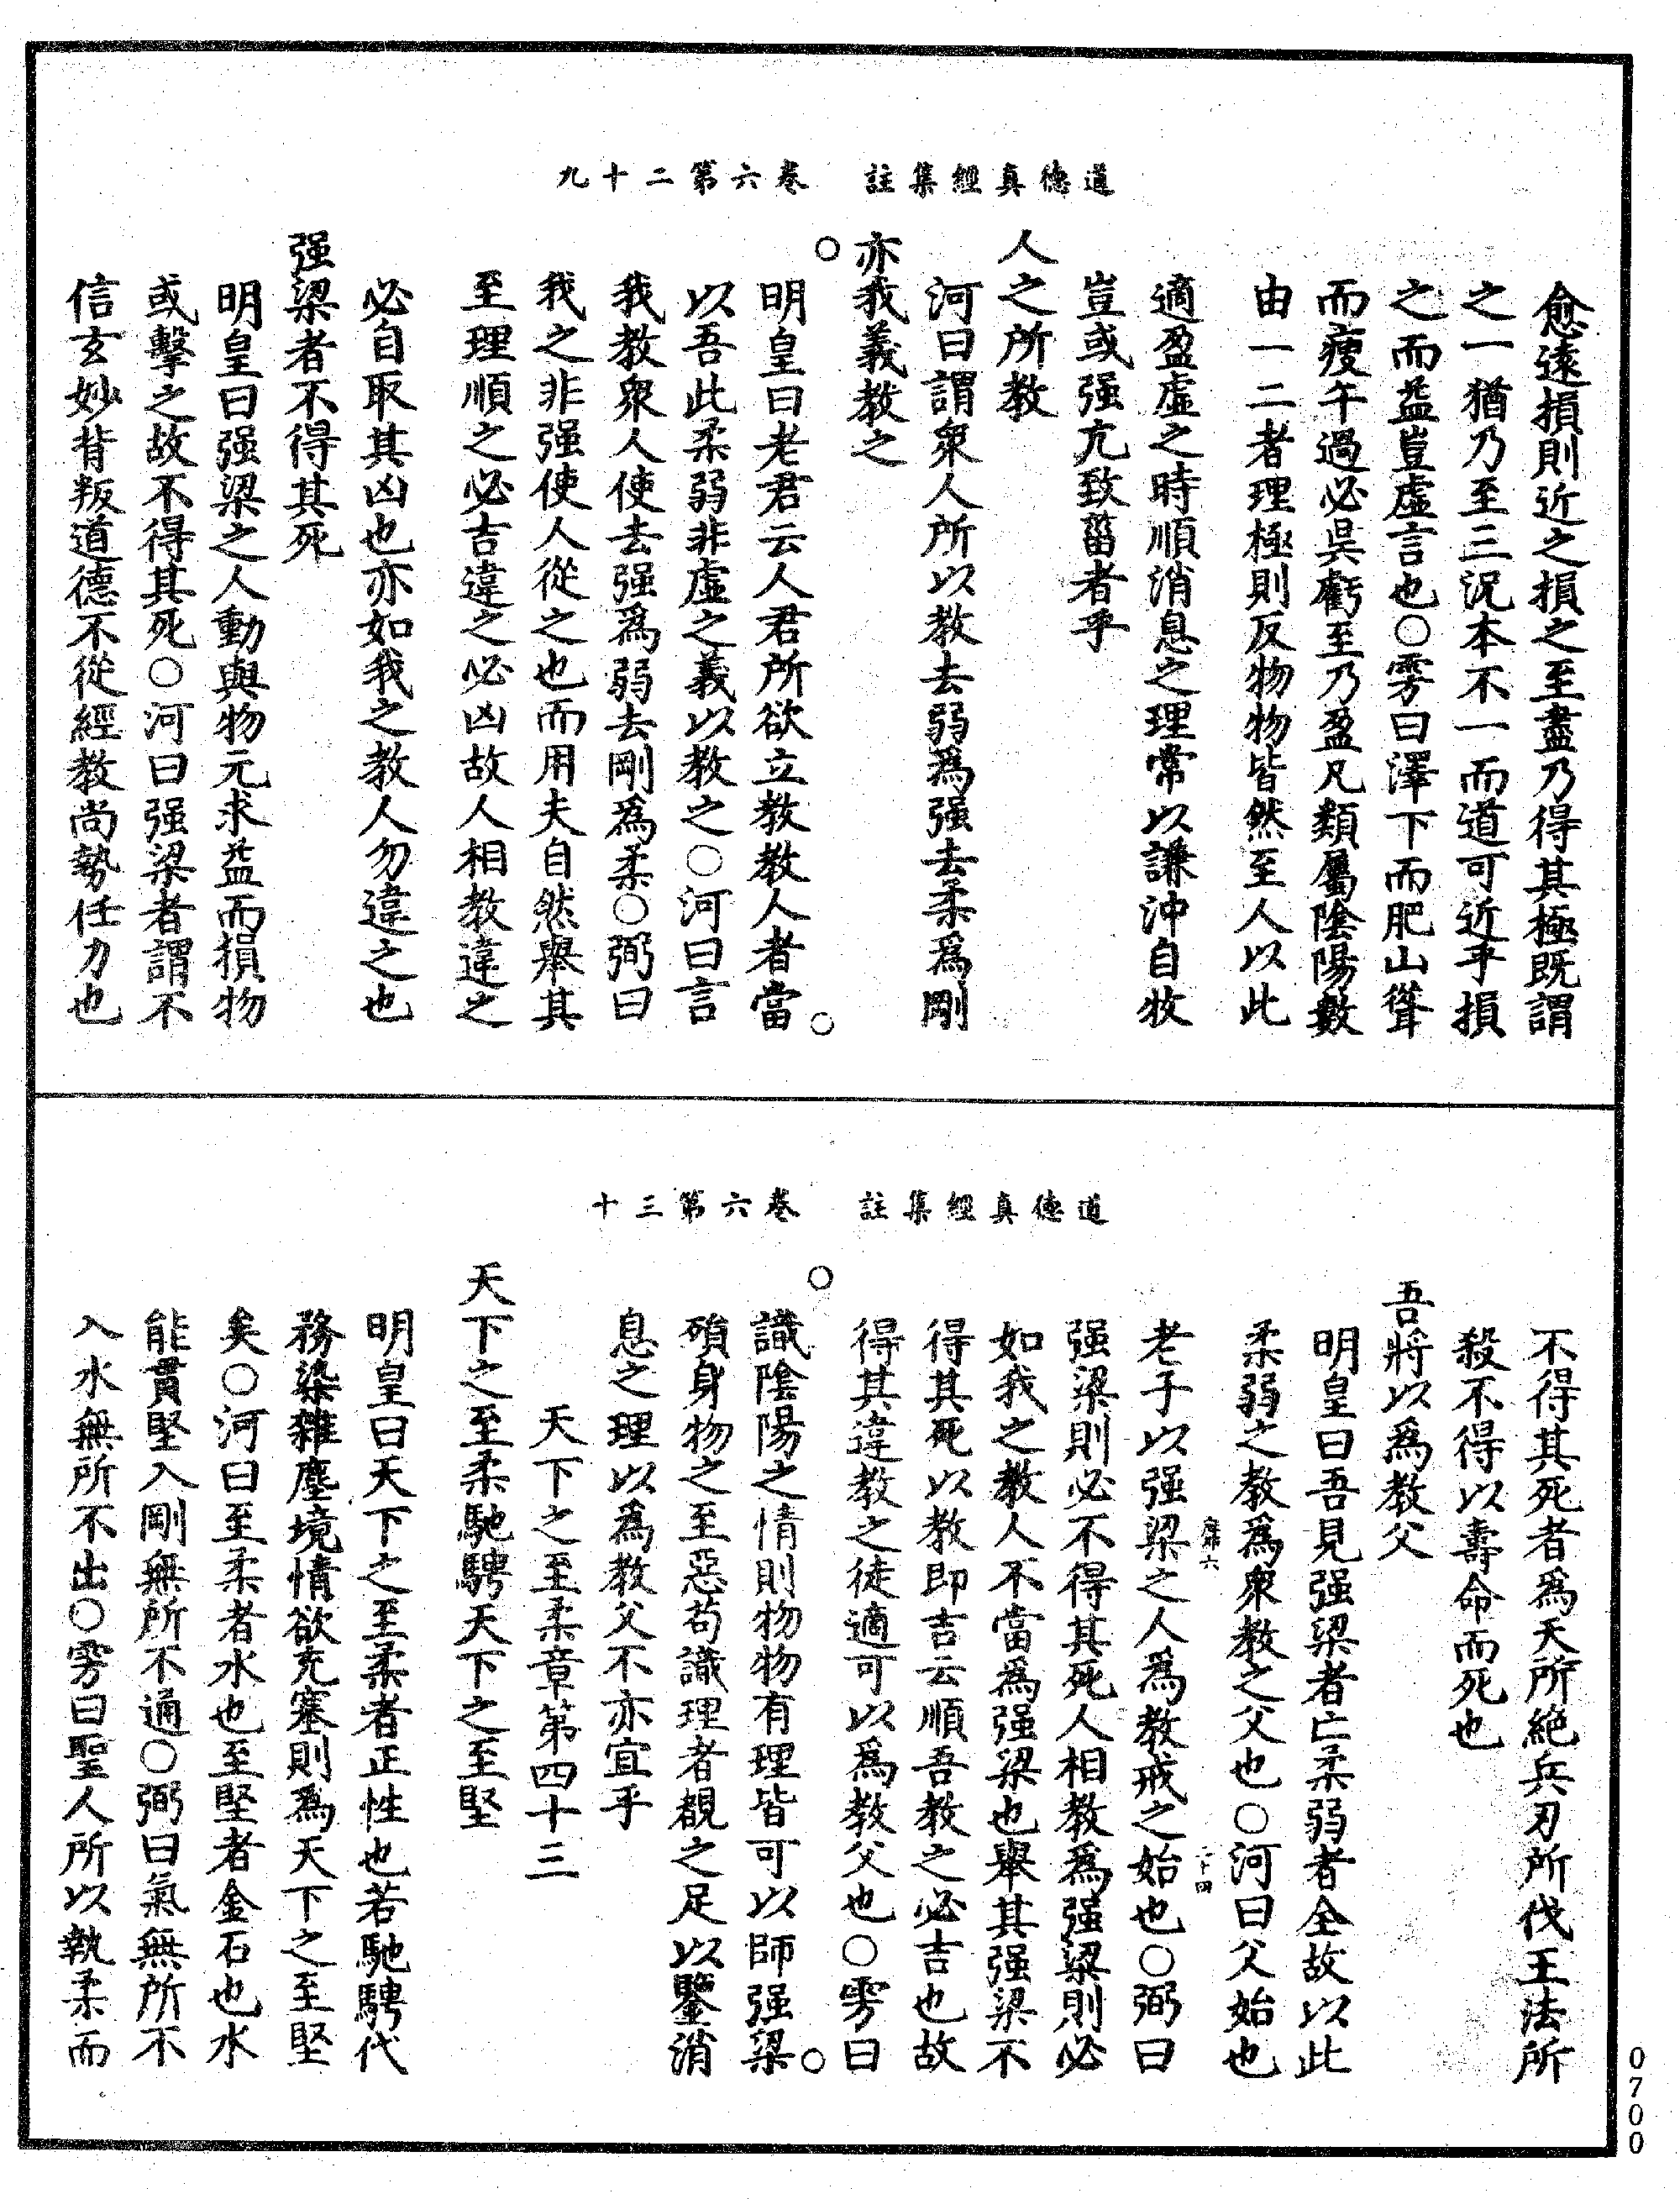 道德真經集註　卷六第二十九
愈遠損則近之損之至盡乃得其極既謂
之一猶乃至三況本不一而道可近乎損
之而益豈虛言也○雱曰澤下而肥山聳
而瘦午過必昃虧至乃盈凡類屬陰陽數
由一二者理極則反物物皆然至人以此
適盈虛之時順消息之理常以謙沖自牧
豈或强亢致菑者乎
人之所教
河曰謂衆人所以教去弱爲强去柔爲剛
亦我義教之
明皇曰老君云人君所欲立教教人者當
以吾此柔弱非虛之義以教之○河曰言
我教衆人使去强爲弱去剛爲柔○弼曰
我之非强使人從之也而用夫自然舉其
至理順之必吉違之必凶故人相教違之
必自取其凶也亦如我之教人勿違之也
强梁者不得其死
明皇曰强梁之人動與物元求益而損物
或擊之故不得其死○河曰强梁者謂不
信玄妙背叛道德不從經教尚勢任力也
道德真經集註　卷六第三十
不得其死者爲天所絶兵刃所伐王法所
殺不得以壽命而死也
吾將以爲教父
明皇曰吾見强梁者亡柔弱者全故以此
柔弱之教爲衆教之父也○河曰父始也
老子以强梁之人爲教戒之始也○弼曰
强梁則必不得其死人相教爲强梁則必
如我之教人不當爲强梁也舉其强梁不
得其死以教即吉云順吾教之必吉也故
得其違教之徒適可以爲教父也○雱曰
識陰陽之情則物物有理皆可以師强梁
殞身物之至惡苟識理者覩之足以鑒消
息之理以爲教父不亦宜乎
天下之至柔章第四十三
天下之至柔馳騁天下之至堅
明皇曰天下之至柔者正性也若馳騁代
務染雜塵境情欲充塞則爲天下之至堅
矣○河曰至柔者水也至堅者金石也水
能貫堅入剛無所不通○弼曰氣無所不
入水無所不出○雱曰聖人所以執柔而
0700